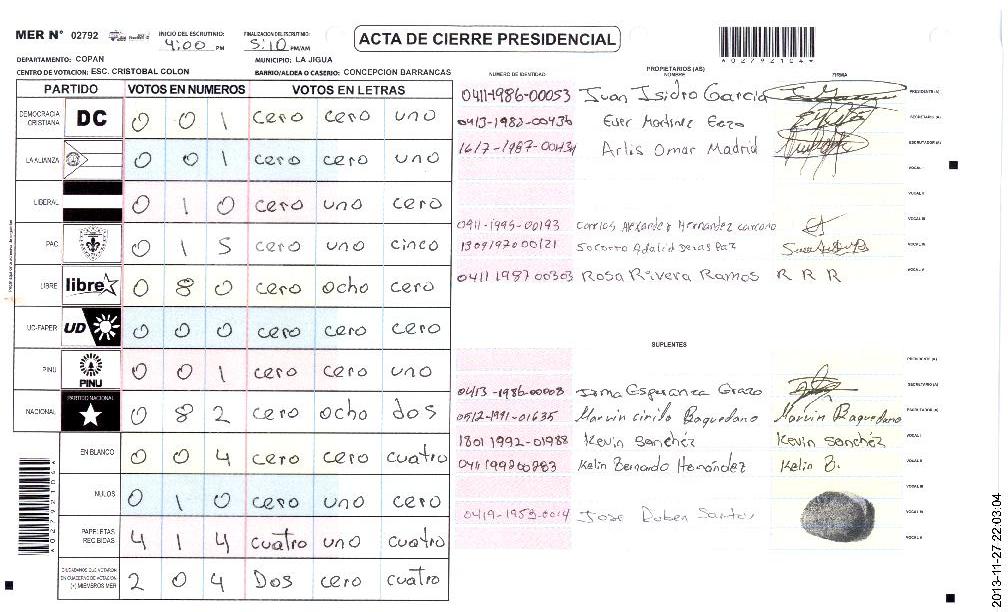 MER N° 02792 INICIO DEL ESCRUTINIO: 4:00 PM FINALIZACION DEL ESCRUTINIO: 5:10 PM/AM
ACTA DE CIERRE PRESIDENCIAL
DEPARTAMENTO: COPAN MUNICIPIO: LA JIGUA
CENTRO DE VOTACION: ESC. CRISTOBAL COLON BARRIO/ALDEA O CASERIO: CONCEPCION BARRANCAS
PARTIDO VOTOS EN NUMEROS VOTOS EN LETRAS
DEMOCRACIA CRISTIANA DC 0 0 1 cero cero uno
LA ALIANZA 0 0 1 cero cero uno
LIBERAL 0 1 0 cero uno cero
PAC 0 1 5 cero uno cinco
LIBRE libre 0 8 0 cero ocho cero
UD-FAPER UD 0 0 0 cero cero cero
PINU PINU 0 0 1 cero cero uno
NACIONAL PARTIDO NACIONAL 0 8 2 cero ocho dos
EN BLANCO 0 0 4 cero cero cuatro
NULOS 0 1 0 cero uno cero
PAPELETAS RECIBIDAS 4 1 4 cuatro uno cuatro
CIUDADANOS QUE VOTARON EN CUADERNO DE VOTACION (+) MIEMBROS MER 2 0 4 Dos cero cuatro
PROPIETARIOS (AS)
NUMERO DE IDENTIDAD NOMBRE FIRMA
0411-1986-00053 Juan Isidro Garcia PRESIDENTE (A)
0413-1982-00436 SECRETARIO (A)
Arlis Omar Madrid ESCRUTADOR (A)
VOCAL I
VOCAL II
0411-1995-00193 Hernandez VOCAL III
Socorro VOCAL IV
0411 1987 00303 Rosa Rivera Ramos R R R VOCAL V
SUPLENTES
PRESIDENTE (A)
0413-1986-00008 Irma Esperanza SECRETARIO (A)
0512-1991-01635 Marvin cirilo Baquedano Marvin Baquedano ESCRUTADOR (A)
1801 1992-01988 Kevin Sanchéz Kevin Sanchéz VOCAL I
Kelin Bernardo Hernández Kelin B. VOCAL II
VOCAL III
Jose VOCAL IV
VOCAL V
A02792104
2013-11-27 22:03:04